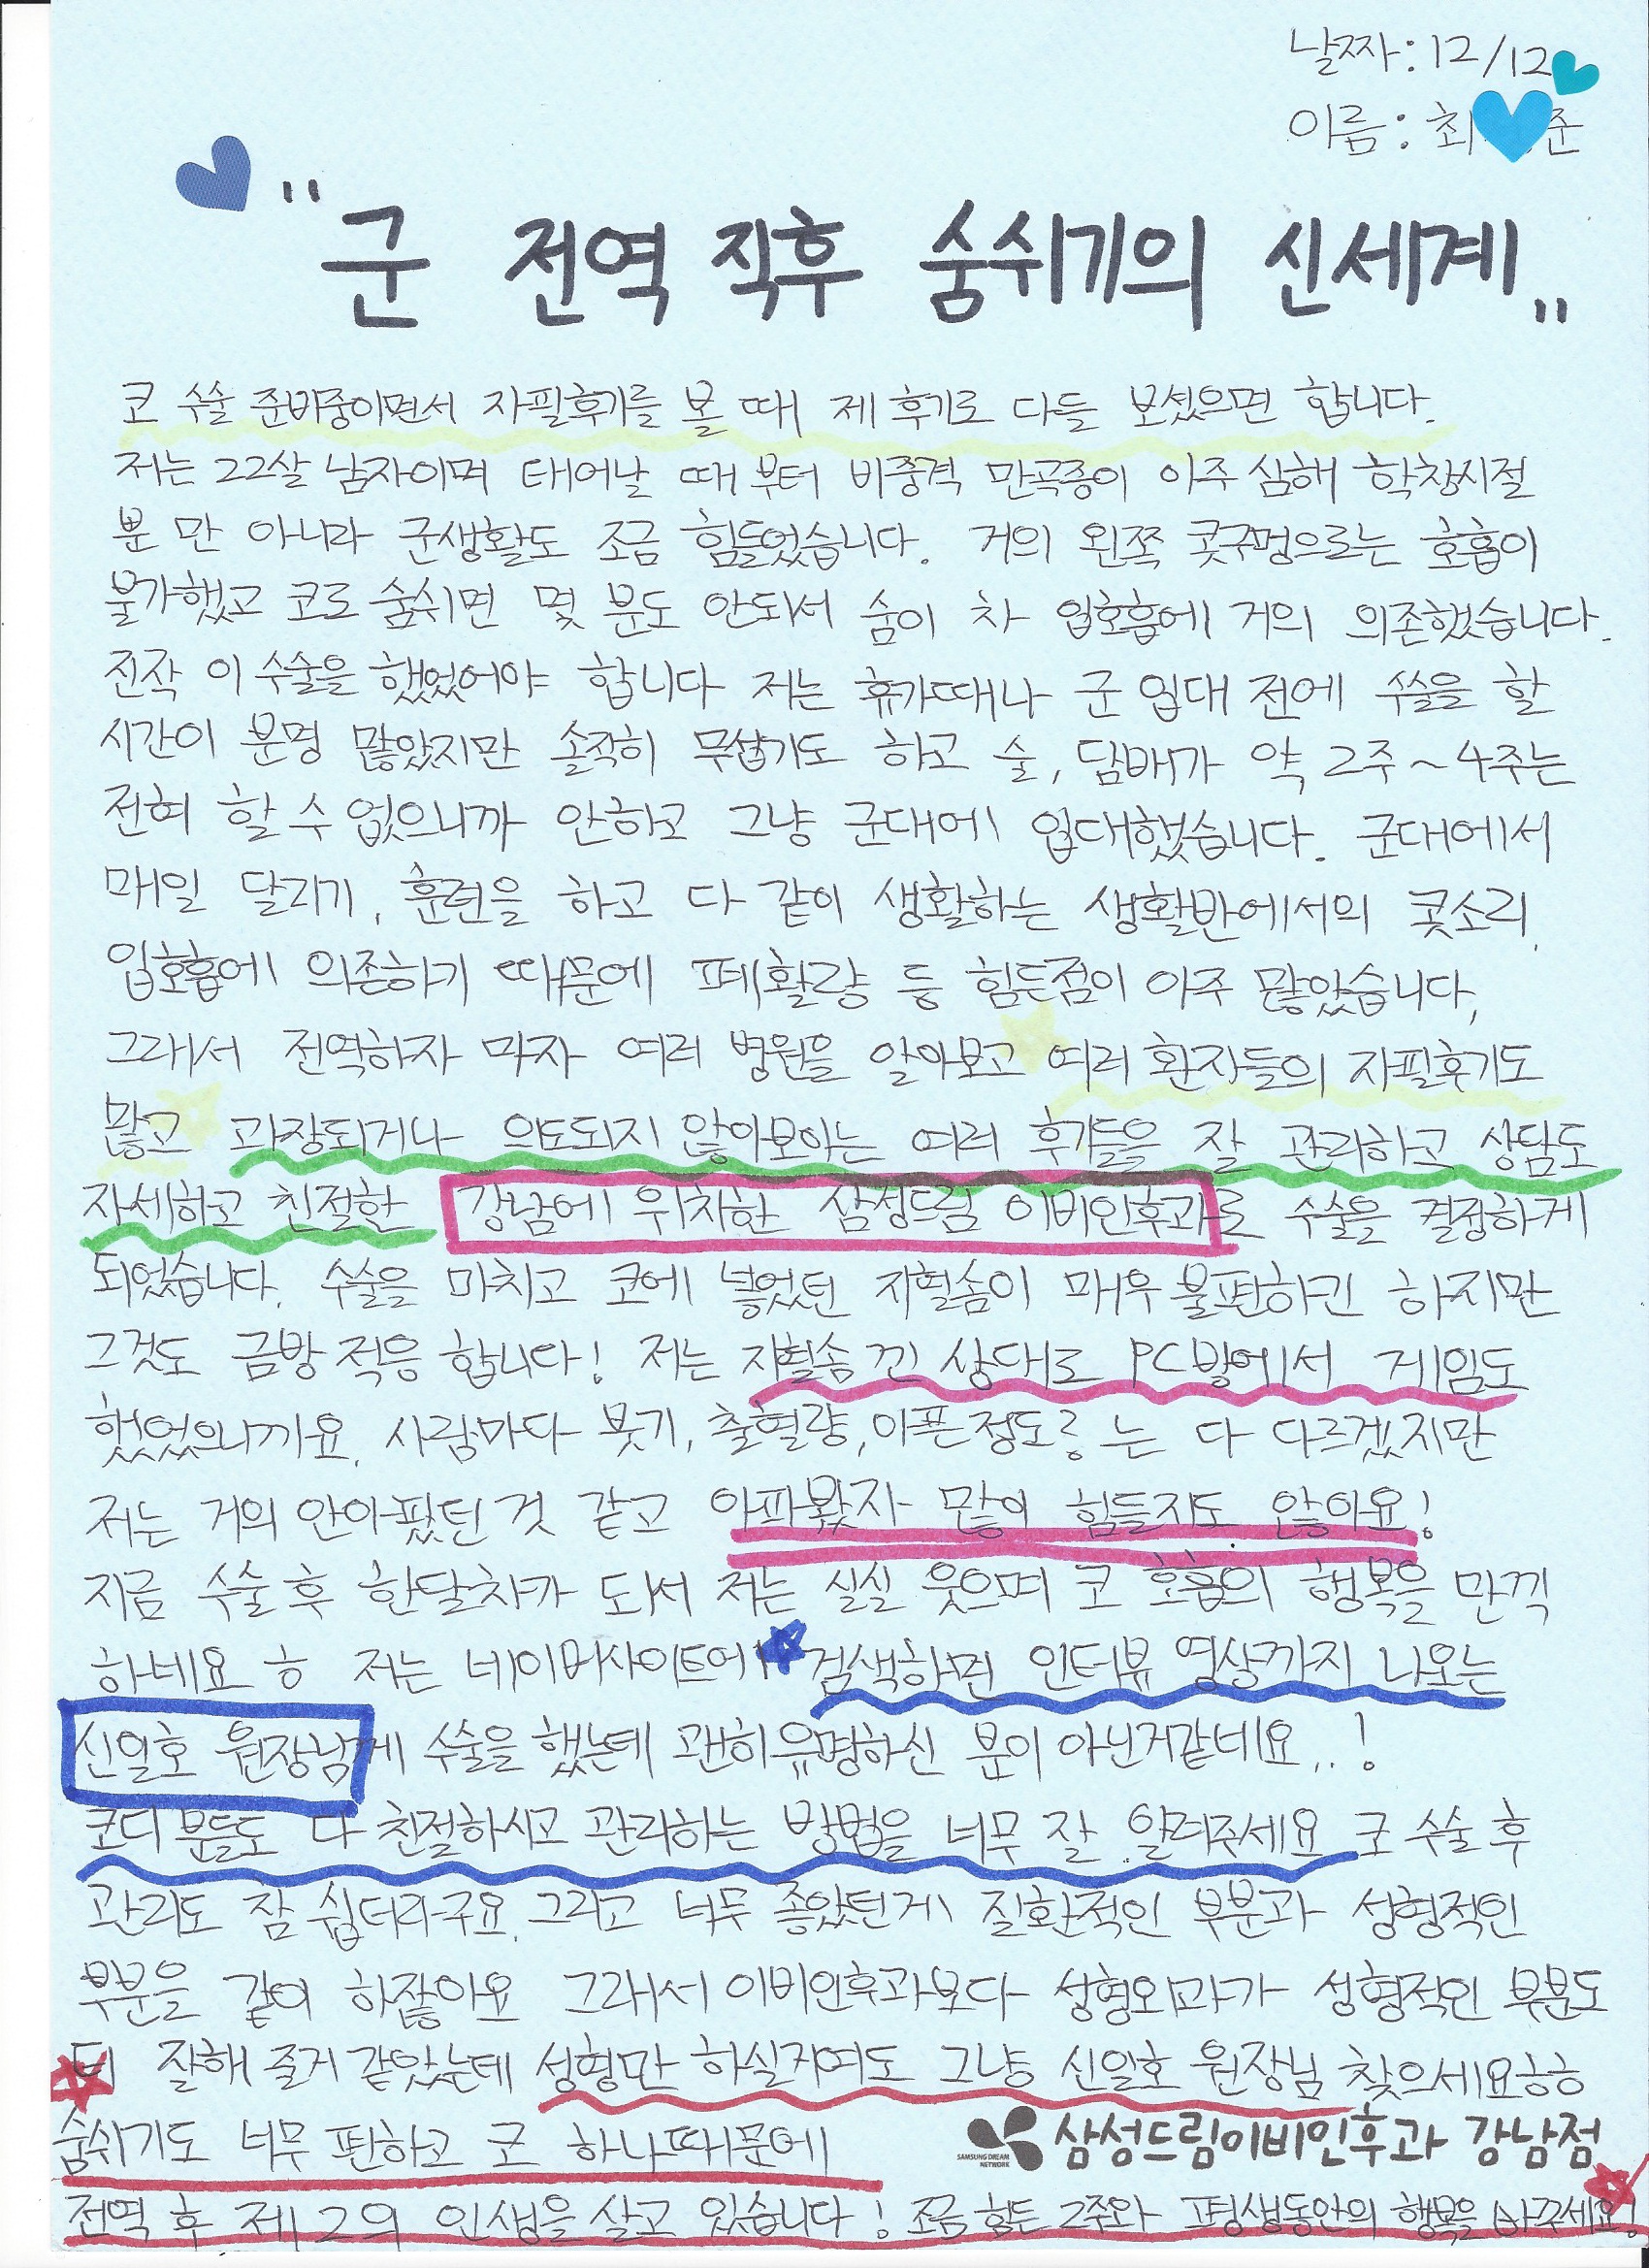 날짜: 12/12
이름: 최 준
"군 전역 직후 숨쉬기의 신세계"
코 수술 준비중이면서 자필후기를 볼 때 제 후기로 다들 보셨으면 합니다.
저는 22살 남자이며 태어날 때 부터 비중격 만곡증이 아주 심해 학창시절
뿐 만 아니라 군생활도 조금 힘들었습니다. 거의 왼쪽 콧구멍으로는 호흡이
불가했고 코로 숨쉬면 몇 분도 안되서 숨이 차 입호흡에 거의 의존했습니다.
진작 이 수술을 했었어야 합니다 저는 휴가때나 군 입대 전에 수술을 할
시간이 분명 많았지만 솔직히 무섭기도 하고 술, 담배가 약 2주~4주는
전혀 할 수 없으니까 안하고 그냥 군대에 입대했습니다. 군대에서
매일 달리기, 훈련을 하고 다 같이 생활하는 생활반에서의 콧소리,
입호흡에 의존하기 때문에 폐활량 등 힘든점이 아주 많았습니다,
그래서 전역하자 마자 여러 병원을 알아보고 여러 환자들의 자필후기도
많고 과장되거나 의도되지 않아보이는 여러 후기들을 잘 관리하고 상담도
자세하고 친절한 강남에 위치한 삼성드림 이비인후과로 수술을 결정하게
되었습니다. 수술을 마치고 코에 넣었던 지혈솜이 매우 불편하긴 하지만
그것도 금방 적응 합니다! 저는 지혈솜 낀 상태로 PC방에서 게임도
했었으니까요. 사람마다 붓기, 출혈량, 아픈정도? 는 다 다르겠지만
저는 거의 안아팠던 것 같고 아파봤자 많이 힘들지도 않아요!
지금 수술 후 한달차가 되서 저는 실실 웃으며 코 호흡의 행복을 만끽
하네요 ㅎ 저는 네이버사이트에 검색하면 인터뷰 영상까지 나오는
신일호 원장님께 수술을 했는데 괜히 유명하신 분이 아닌거같네요..!
코디 분들도 다 친절하시고 관리하는 방법을 너무 잘 알려주세요 코 수술 후
관리도 참 쉽더라구요. 그리고 너무 좋았던게 질환적인 부분과 성형적인
부분을 같이 하잖아요 그래서 이비인후과보다 성형외과가 성형적인 부분도
더 잘해 줄거 같았는데 성형만 하실거여도 그냥 신일호 원장님 찾으세요ㅎㅎ
숨쉬기도 너무 편하고 코 하나때문에
SAMSUNG DREAM NETWORK 삼성드림이비인후과 강남점
전역 후 제 2의 인생을 살고 있습니다! 조금 힘든 2주와 평생동안의 행복을 바꾸세요!